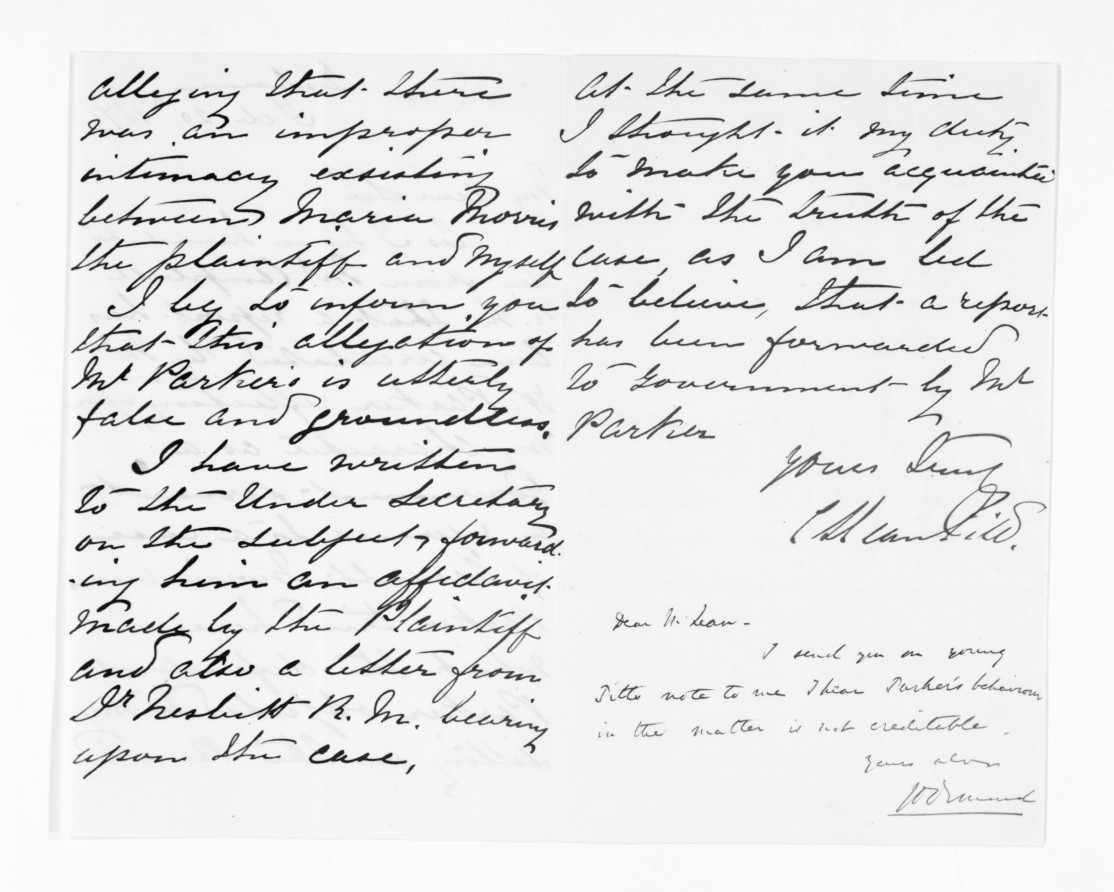 alleging that there
was an improper
intimacy exsisting
between Maria Morris
the plaintiff and myself
I beg to inform you
that this allegation of
Mr Parker's is utterly
false and groundless.
I have written
to the Under Secretary
on the subject, forward-
-ing him an affidavit
made by the Plaintiff
and also a letter from
Dr Nesbitt R. M. bearing
upon the case,
At the same time
I thought it my duty
to make you acquainted
with the truth of the
case, as I am led
to believe, that a report
has been forwarded
to Government by Mr
Parker
Yours Truly
Dear McLean -
I send you on young
note to me I hear Parker's behaviour
in the matter is not creditable.
Yours